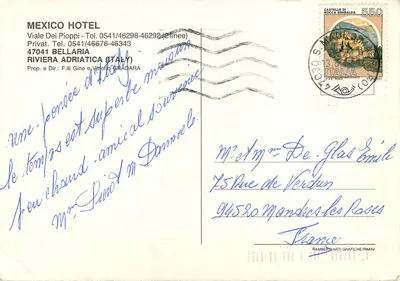 MEXICO HOTEL
Viale Dei Pioppi - Tel. 0541/46298-46292 (2 linee)
Privat. Tel. 0541/46676-46343
47041 BELLARIA
RIVIERA ADRIATICA (ITALY)
Prop. e Dir.: F.lli Gino e GRADARA
CASTELLO DI
ROCCA SINIBALDA
550
47030 S. MAU
une pensée d'Italy
le temps est superbe mais un
peu chaud - amical souvenir
Mme
Mr et Mme De Glas Emile
75 Rue de Verdun
94520 Mandres les Roses
France